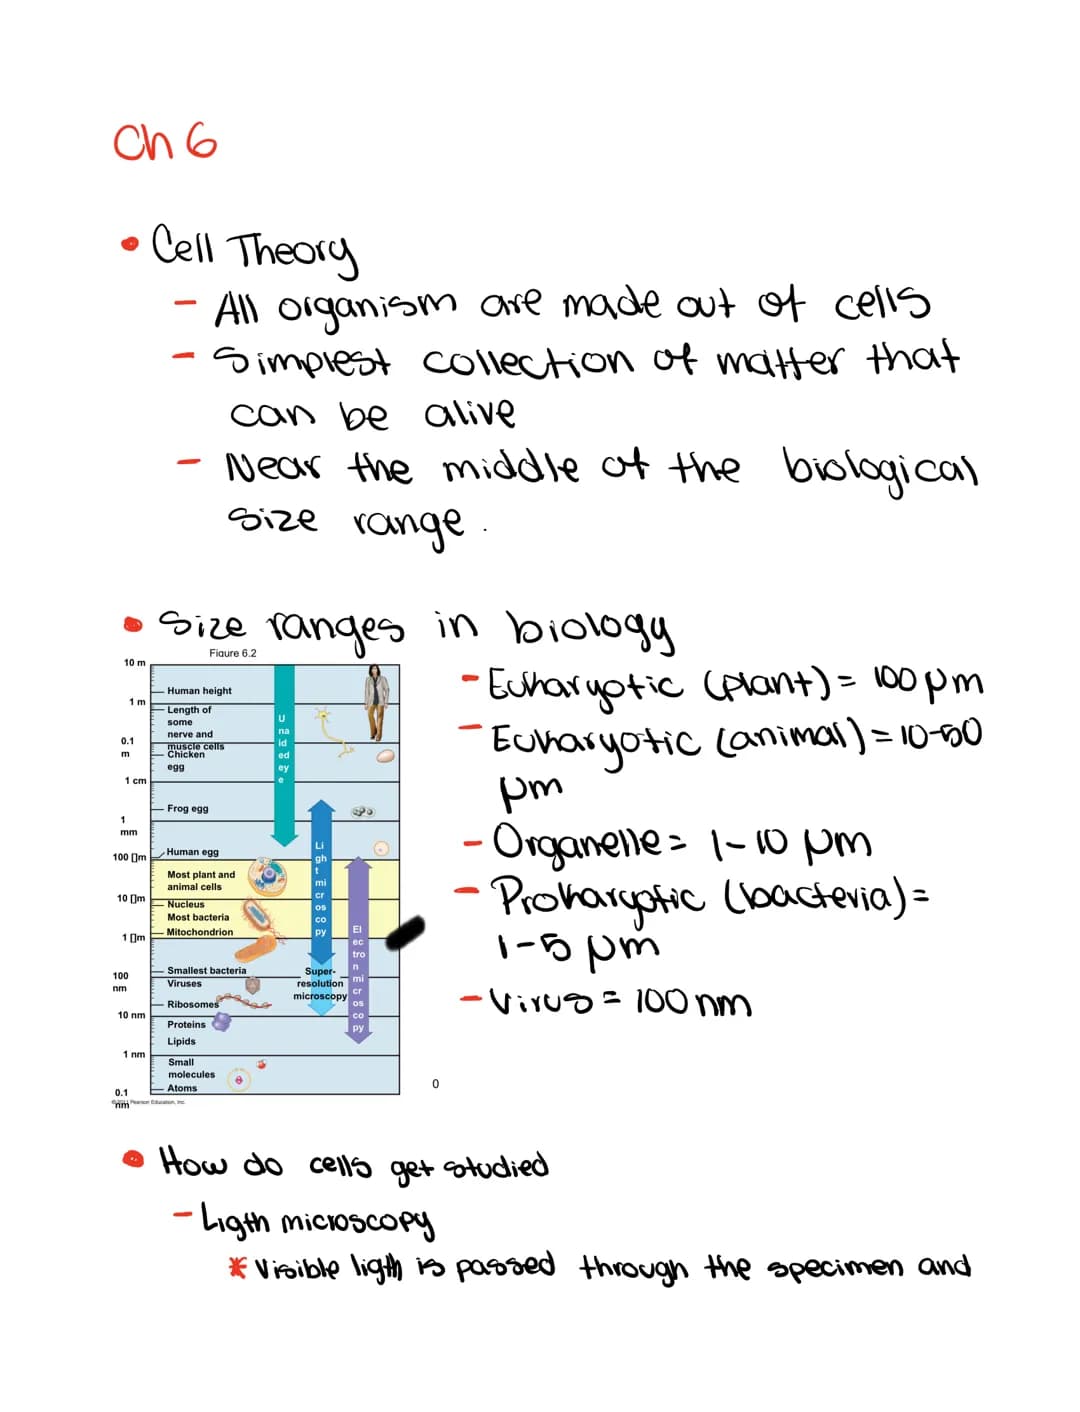 Ch 6
• Cell Theory
- All organism are made out of cells
- Simplest collection of matter that
can be alive
- Near the middle of the biological
size range.
• Size ranges in biology
Figure 6.2
10 m
Human height
1 m
Length of
some
nerve and
muscle cells
0.1
m
Chicken
egg
1 cm
Frog egg
1
mm
100 []m
Human egg
Most plant and
animal cells
10 []m
Nucleus
Most bacteria
Mitochondrion
1 []m
Smallest bacteria
100
nm
Viruses
Ribosomes
10 nm
Proteins
Lipids
1 nm
Small
molecules
Atoms
0.1
nm
U
na
id
ed
ey
e
Li
gh
t
mi
cr
os
co
py
Super-
resolution
microscopy
El
ec
tro
n
mi
cr
os
co
py
Pearson Education, Inc.
- Eukaryotic (plant) = 100 µm
- Eukaryotic (animal) = 10-50
µm
- Organelle = 1-10 µm
- Prokaryotic (bacteria) =
1-5 µm
- Virus = 100 nm
0
• How do cells get studied
- Ligth microscopy
* Visible ligth is passed through the specimen and